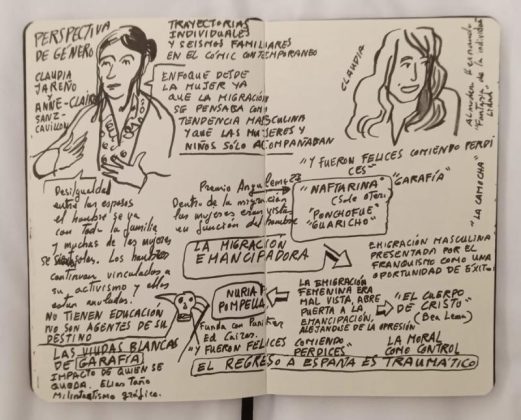 PERSPECTIVA
DE GÉNERO
CLAUDIA
JAREÑO
Y
ANNE-CLAIRE
SANZ-
GAVILLON
TRAYECTORIAS
INDIVIDUALES
Y SEISMOS FAMILIARES
EN EL CÓMIC CONTEMPORANEO
ENFOQUE DESDE
LA MUJER YA
QUE LA MIGRACIÓN
SE PENSABA COMO
TENDENCIA MASCULINA
Y QUE LAS MUJERES Y
NIÑOS SÓLO ACOMPAÑABAN
Desigualdad
entre los esposos
el hombre se va
con toda la familia
y muchas de las mujeres
se solas. Los hombres
continuan vinculados a
su activismo y ellas
están anuladas.
NO TIENEN EDUCACIÓN
NO SON AGENTES DE SU
DESTINO
LAS VIUDAS BLANCAS
DE GARAFÍA
IMPACTO DE QUIEN SE
QUEDA. Elias Taño
gráfico.
Premio
Dentro de la migración
las mujeres eran vistas
en función del hombre
LA MIGRACIÓN
EMANCIPADORA
NURIA
POMPEIA
Funda con
Ed
"Y FUERON FELICES COMIENDO
PERDICES"
CLAUDIA
Almudena Hernando
"Fantasía de la individua
lidad"
"Y FUERON FELICES COMIENDO PERDI
CES"
"NAFTARINA"
"PONCHOFUE"
"GUARICHO"
"GARAFÍA"
"LA CAMOCHA"
EMIGRACIÓN MASCULINA
PRESENTADO POR EL
FRANQUISMO COMO UNA
OPORTUNIDAD DE ÉXITO
LA EMIGRACIÓN
FEMENINA ERA
MAL VISTA, ABRE
PUERTA A LA
EMANCIPACIÓN,
ALEJANDOSE DE LA OPRESIÓN
"EL CUERPO
DE CRISTO"
(Bea Lema)
LA MORAL
COMO CONTROL
EL REGRESO A ESPAÑA ES TRAUMÁTICO